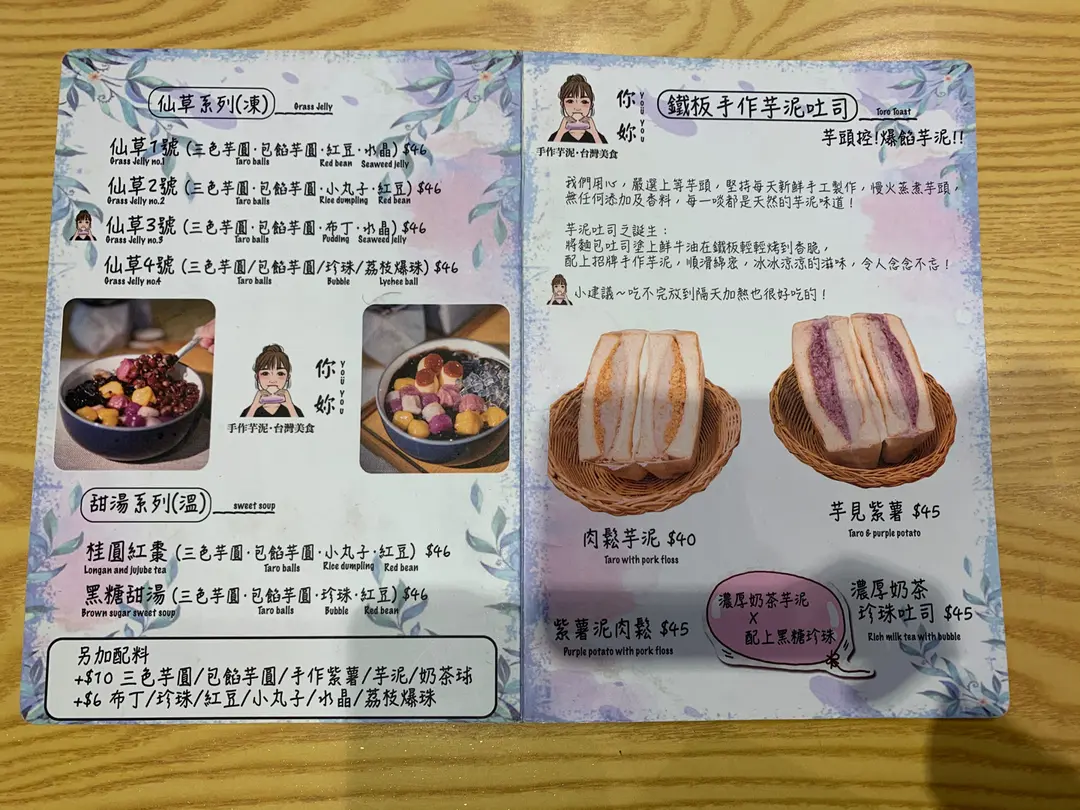 仙草系列(凍) Grass Jelly
仙草1號 (三色芋圓·包餡芋圓·紅豆·水晶) $46
Grass Jelly no.1 Taro balls Red bean Seaweed jelly
仙草2號 (三色芋圓·包餡芋圓·小丸子·紅豆) $46
Grass Jelly no.2 Taro balls Rice dumpling Red bean
仙草3號 (三色芋圓·包餡芋圓·布丁·水晶) $46
Grass Jelly no.3 Taro balls Pudding Seaweed Jelly
仙草4號 (三色芋圓/包餡芋圓/珍珠/荔枝爆珠) $46
Grass Jelly no4 Taro balls Bubble Lychee ball
你妳
YOU YOU
手作芋泥·台灣美食
甜湯系列(溫) sweet soup
桂圓紅棗 (三色芋圓·包餡芋圓·小丸子·紅豆) $46
Longan and jujube tea Taro balls Rice dumpling Red bean
黑糖甜湯 (三色芋圓·包餡芋圓·珍珠·紅豆) $46
Brown sugar sweet soup Taro balls Bubble Red bean
另加配料
+$10 三色芋圓/包餡芋圓/手作紫薯/芋泥/奶茶球
+$6 布丁/珍珠/紅豆/小丸子/水晶/荔枝爆珠
你妳
YOU YOU
手作芋泥·台灣美食
鐵板手作芋泥吐司 Toro Toast
芋頭控!爆餡芋泥!!
我們用心，嚴選上等芋頭，堅持每天新鮮手工製作，慢火蒸煮芋頭，
無任何添加及香料，每一啖都是天然的芋泥味道！
芋泥吐司之誕生：
將麵包吐司塗上鮮牛油在鐵板輕輕烤到香脆，
配上招牌手作芋泥，順滑綿密，冰冰涼涼的滋味，令人念念不忘！
小建議～吃不完放到隔天加熱也很好吃的！
肉鬆芋泥 $40
Taro with pork floss
芋見紫薯 $45
Taro & purple potato
紫薯泥肉鬆 $45
Purple potato with pork floss
濃厚奶茶芋泥
X
配上黑糖珍珠
濃厚奶茶
珍珠吐司 $45
Rich milk tea with bubble